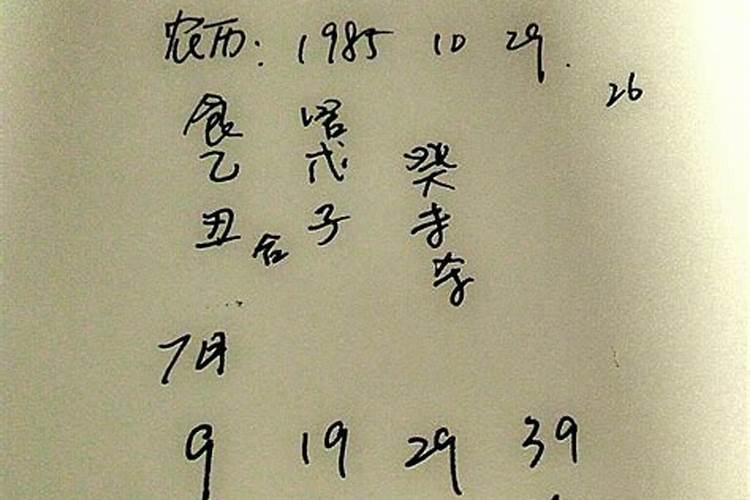 农历: 1985 10 29.
26
食 官
乙 戊 癸
丑 合 子 未
7月
9 19 29 39